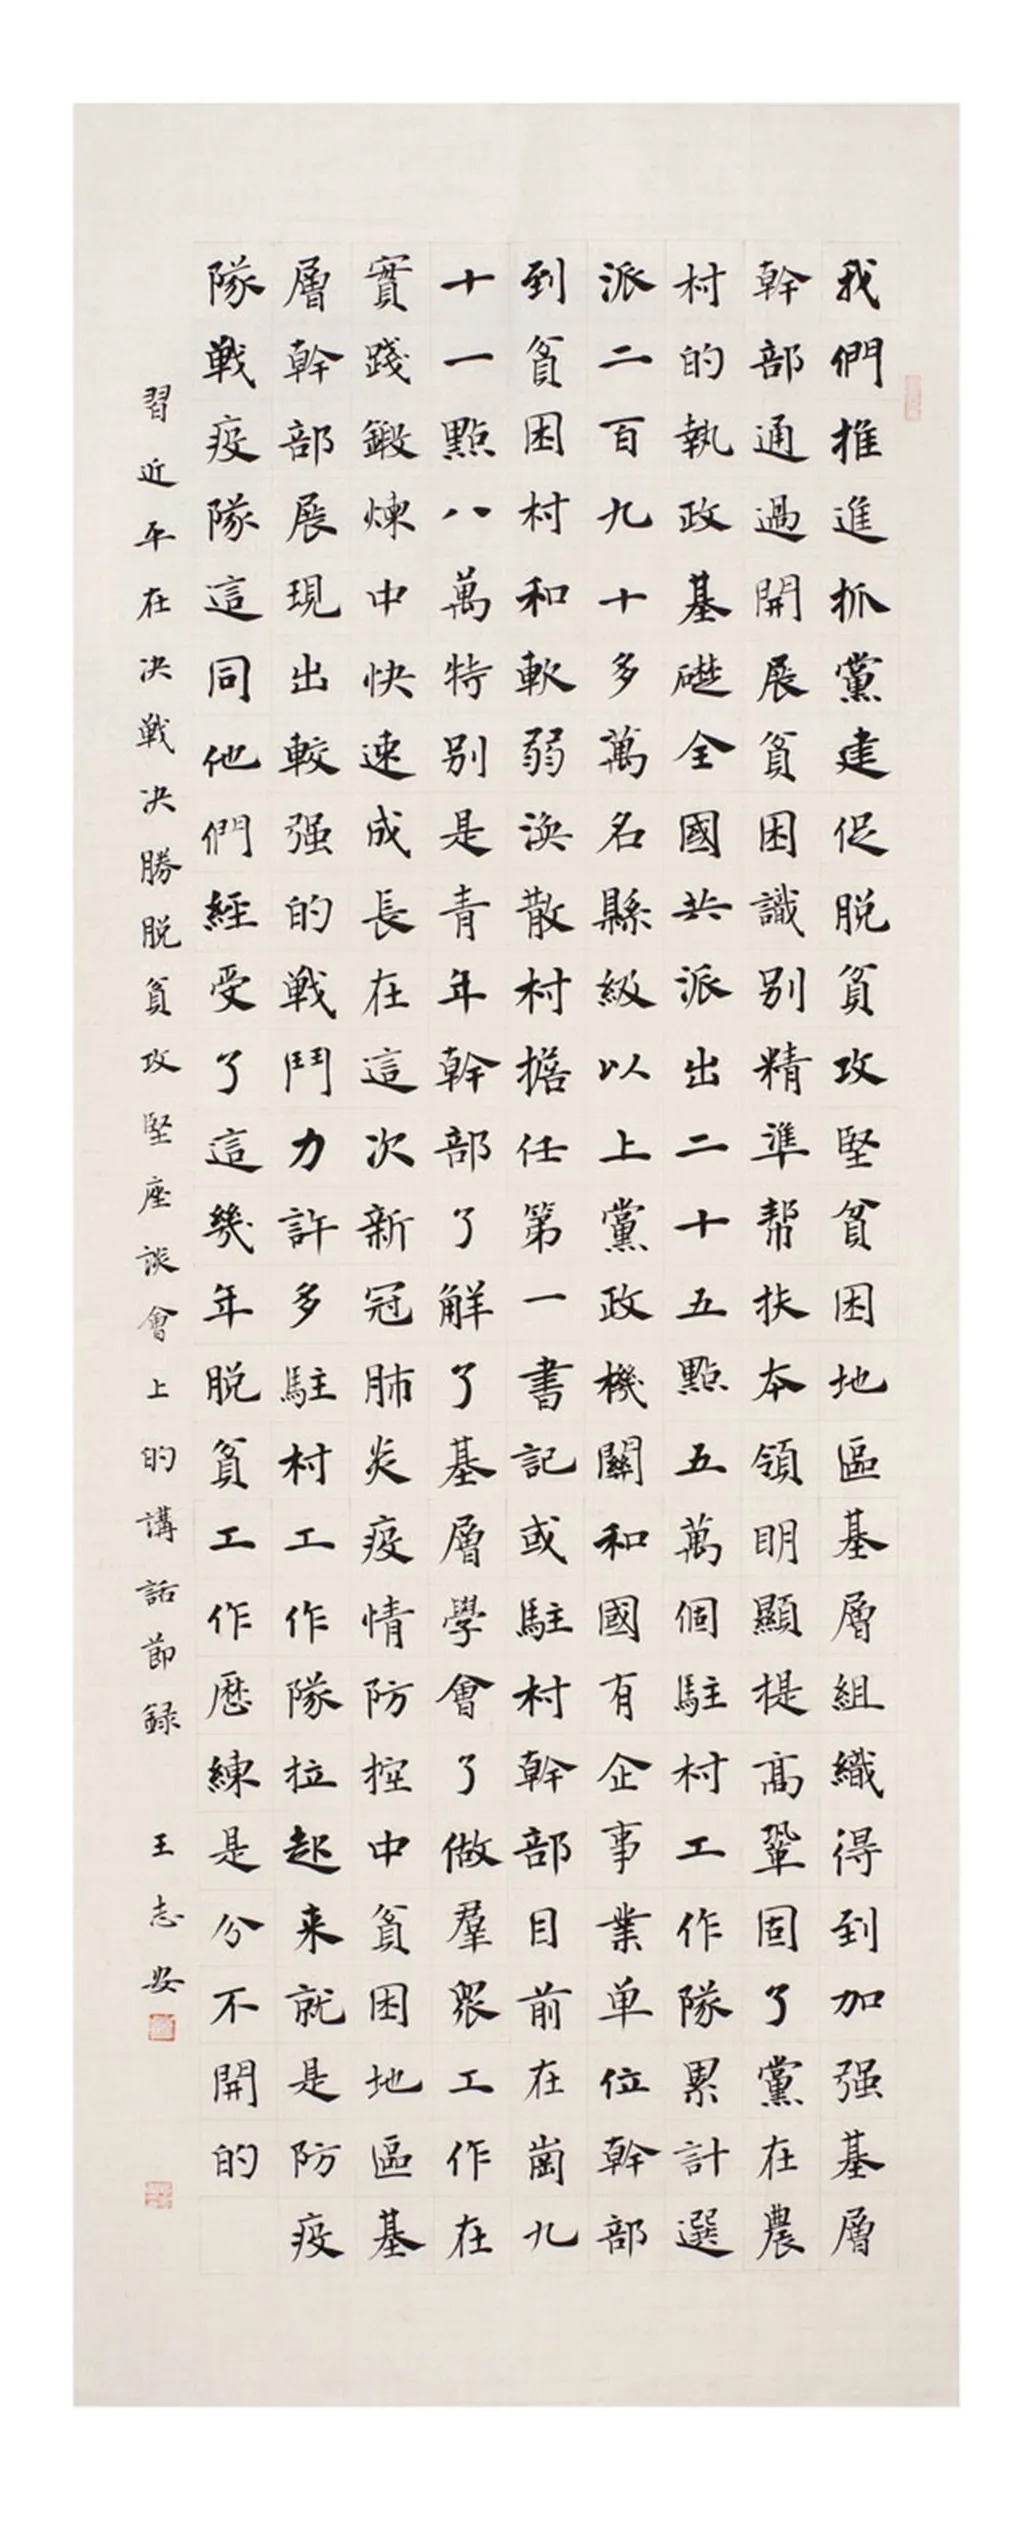 我們推進抓黨建促脱貧攻堅貧困地區基層組織得到加强基層
幹部通過開展貧困識别精準帮扶本領明顯提高鞏固了黨在農
村的執政基礎全國共派出二十五點五萬個駐村工作隊累計選
派二百九十多萬名縣級以上黨政機關和國有企事業单位幹部
到貧困村和軟弱渙散村擔任第一書記或駐村幹部目前在崗九
十一點八萬特别是青年幹部了解了基層學會了做羣衆工作在
實踐鍛煉中快速成長在這次新冠肺炎疫情防控中貧困地區基
層幹部展現出較强的戦鬥力許多駐村工作隊拉起来就是防疫
隊戦疫隊這同他們經受了這幾年脱貧工作歷練是分不開的
習近平在决戦决勝脱貧攻堅座談會上的講話節録 王志安